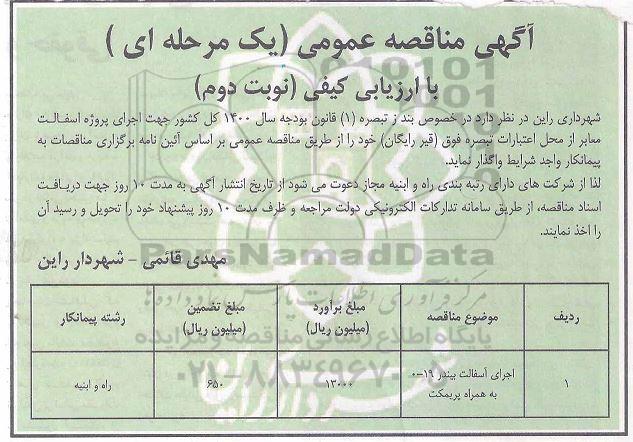 آگهی مناقصه عمومی (یک مرحله ای)
با ارزیابی کیفی (نوبت دوم)
شهرداری راین در نظر دارد در خصوص بند ز تبصره (۱) قانون بودجه سال ۱۴۰۰ کل کشور جهت اجرای پروژه اسفالت
معابر از محل اعتبارات تبصره فوق (قیر رایگان) خود را از طریق مناقصه عمومی بر اساس آئین نامه برگزاری مناقصات به
پیمانکار واجد شرایط واگذار نماید.
لذا از شرکت های دارای رتبه بندی راه و ابنیه مجاز دعوت می شود از تاریخ انتشار آگهی به مدت ۱۰ روز جهت دریافت
اسناد مناقصه، از طریق سامانه تدارکات الکترونیکی دولت مراجعه و ظرف مدت ۱۰ روز پیشنهاد خود را تحویل و رسید آن
را اخذ نمایند.
مهدی قائمی - شهردار راین
ParsNamadData
مرکز فرآوری اطلاعات پارس نماد داده ها
پایگاه اطلاع رسانی مناقصه و مزایده
۰۲۱-۸۸۳۴۹۶۷۰
ردیف موضوع مناقصه مبلغ برآورد (میلیون ریال) مبلغ تضمین (میلیون ریال) رشته پیمانکار
۱ اجرای آسفالت بیندر ۱۹-۰ به همراه پریمکت ۱۳۰۰۰ ۶۵۰ راه و ابنیه